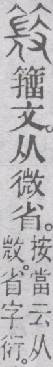 籒文。从微省。
按當云从
𢼸。省字衍。